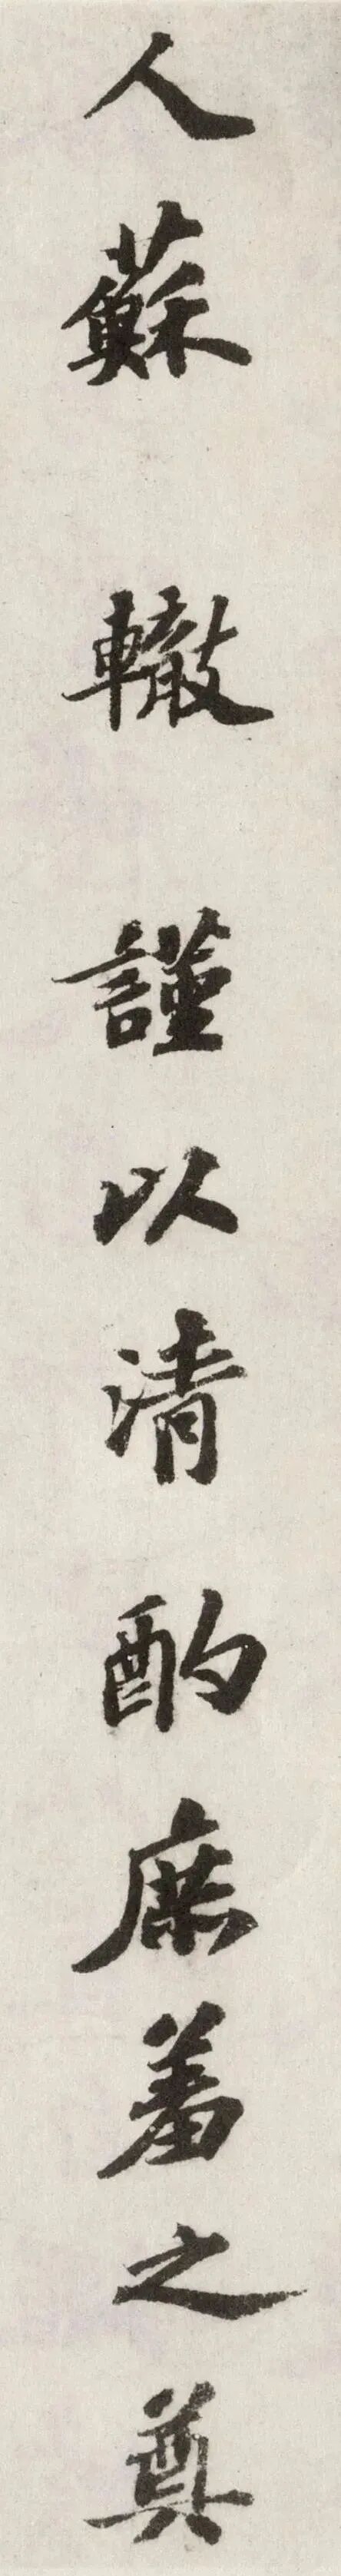 人蘇轍謹以清酌庶羞之奠